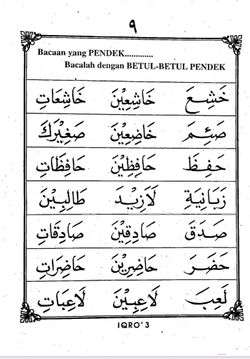 ٩
Bacaan yang PENDEK.............
Bacalah dengan BETUL-BETUL PENDEK
خَشِعَ خَاشِعِيْنَ خَاشِعَاتِ
خَاضِعِيْنَ صَغِيْرَكَ
حَفِظَ حَافِظِيْنَ حَافِظَاتِ
زَبَانِيَةِ لَازِيْدَ طَالِبِيْنَ
صَدَقَ صَادِقِيْنَ صَادِقَاتِ
حَضَرَ حَاضِرِيْنَ حَاضِرَاتِ
لَعِبَ لَاعِبِيْنَ لَاعِبَاتِ
IQRO'3